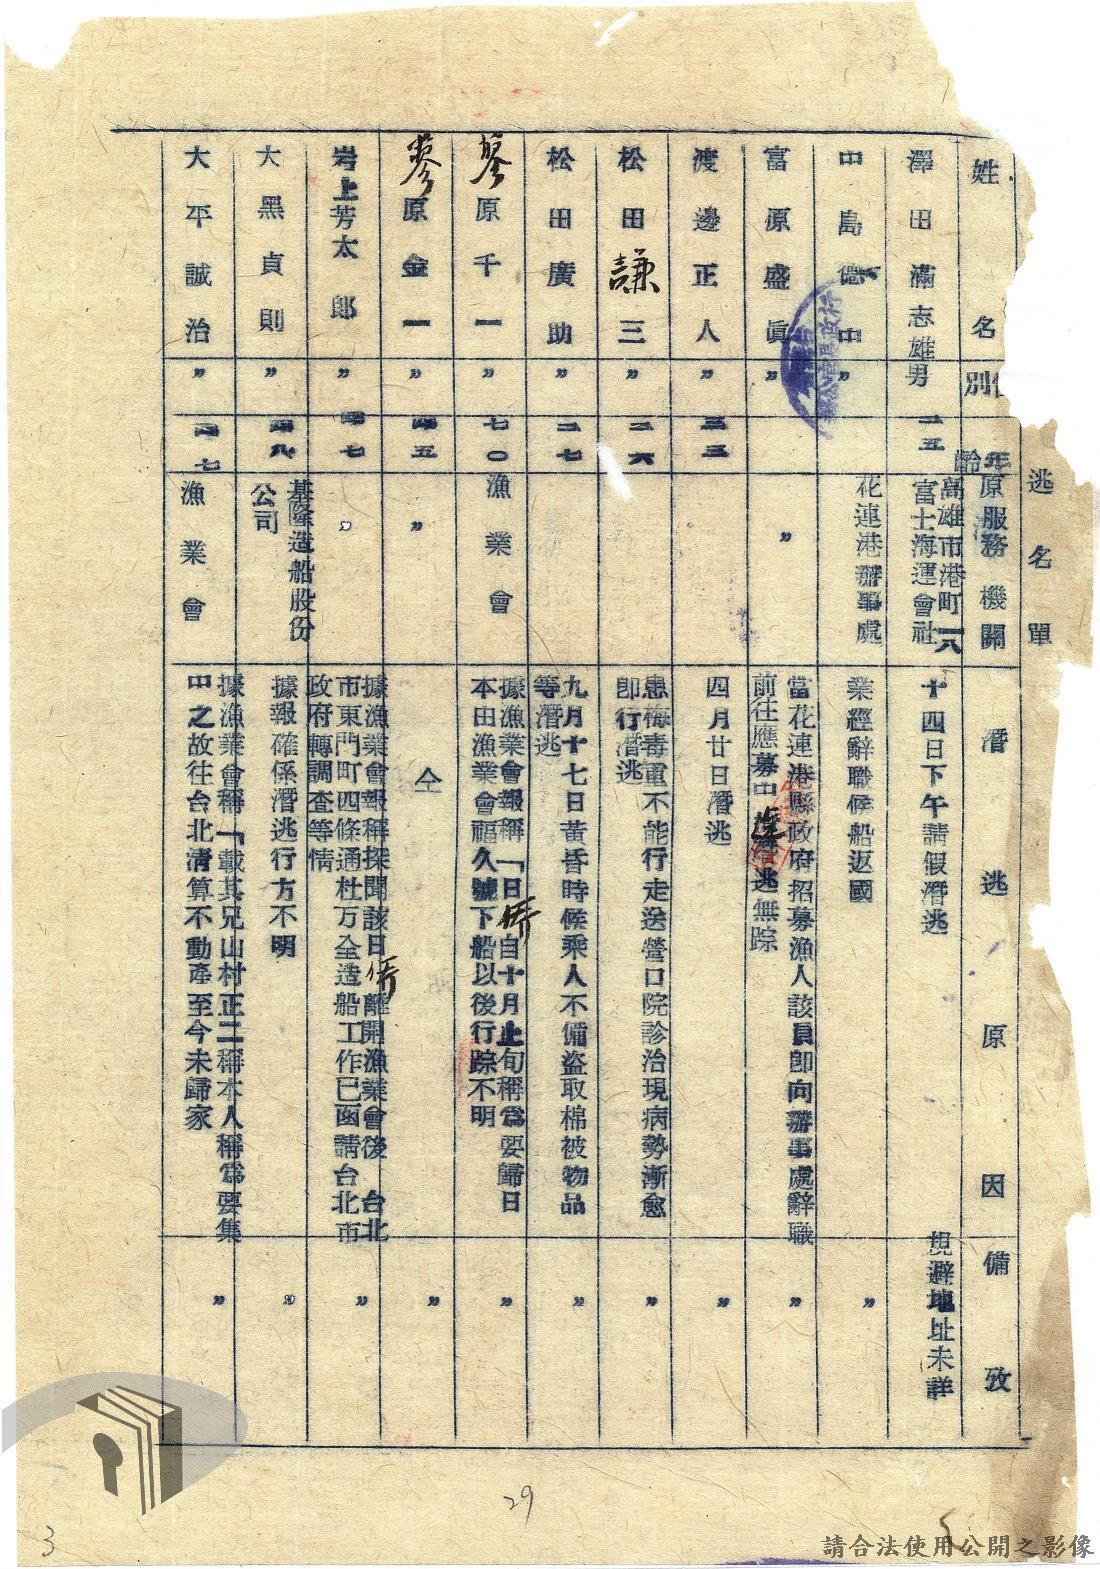 逃名單
姓名
別
年齡
原服務機關
潛逃原因
備攷
澤田滿志雄
男
二五
高雄市港町一八
富士海運會社
十四日下午請假潛逃
規避地址未詳
中島德中
〃
花連港辦事處
業經辭職候船返國
〃
富原盛眞
〃
〃
當花連港縣政府招募漁人該員卽向辦事處辭職
前往應募中途潛逃無踪
〃
渡邊正人
〃
三三
四月廿日潛逃
〃
松田謙三
〃
二六
患梅毒重不能行走送營口院診治現病勢漸愈
卽行潛逃
〃
松田廣助
〃
二七
九月十七日黃昏時候乘人不備盜取棉被物品
等潛逃
〃
原千一
〃
七〇
漁業會
據漁業會報稱「日僑自十月上旬稱為要歸日
本田漁業會福久號下船以後行踪不明
〃
原金一
〃
四五
〃
仝
〃
岩上芳太郎
〃
四七
〃
據漁業會報稱探聞該日僑離開漁業會後 台北
市東門町四條通杜万全造船工作已函請台北市
政府轉調查等情
〃
大黑貞則
〃
四八
基隆造船股份
公司
據報確係潛逃行方不明
〃
大平誠治
〃
四七
漁業會
據漁業會稱「載其兄山村正二稱本人稱為要集
中之故往台北清算不動產至今未歸家
〃
29
3
請合法使用公開之影像